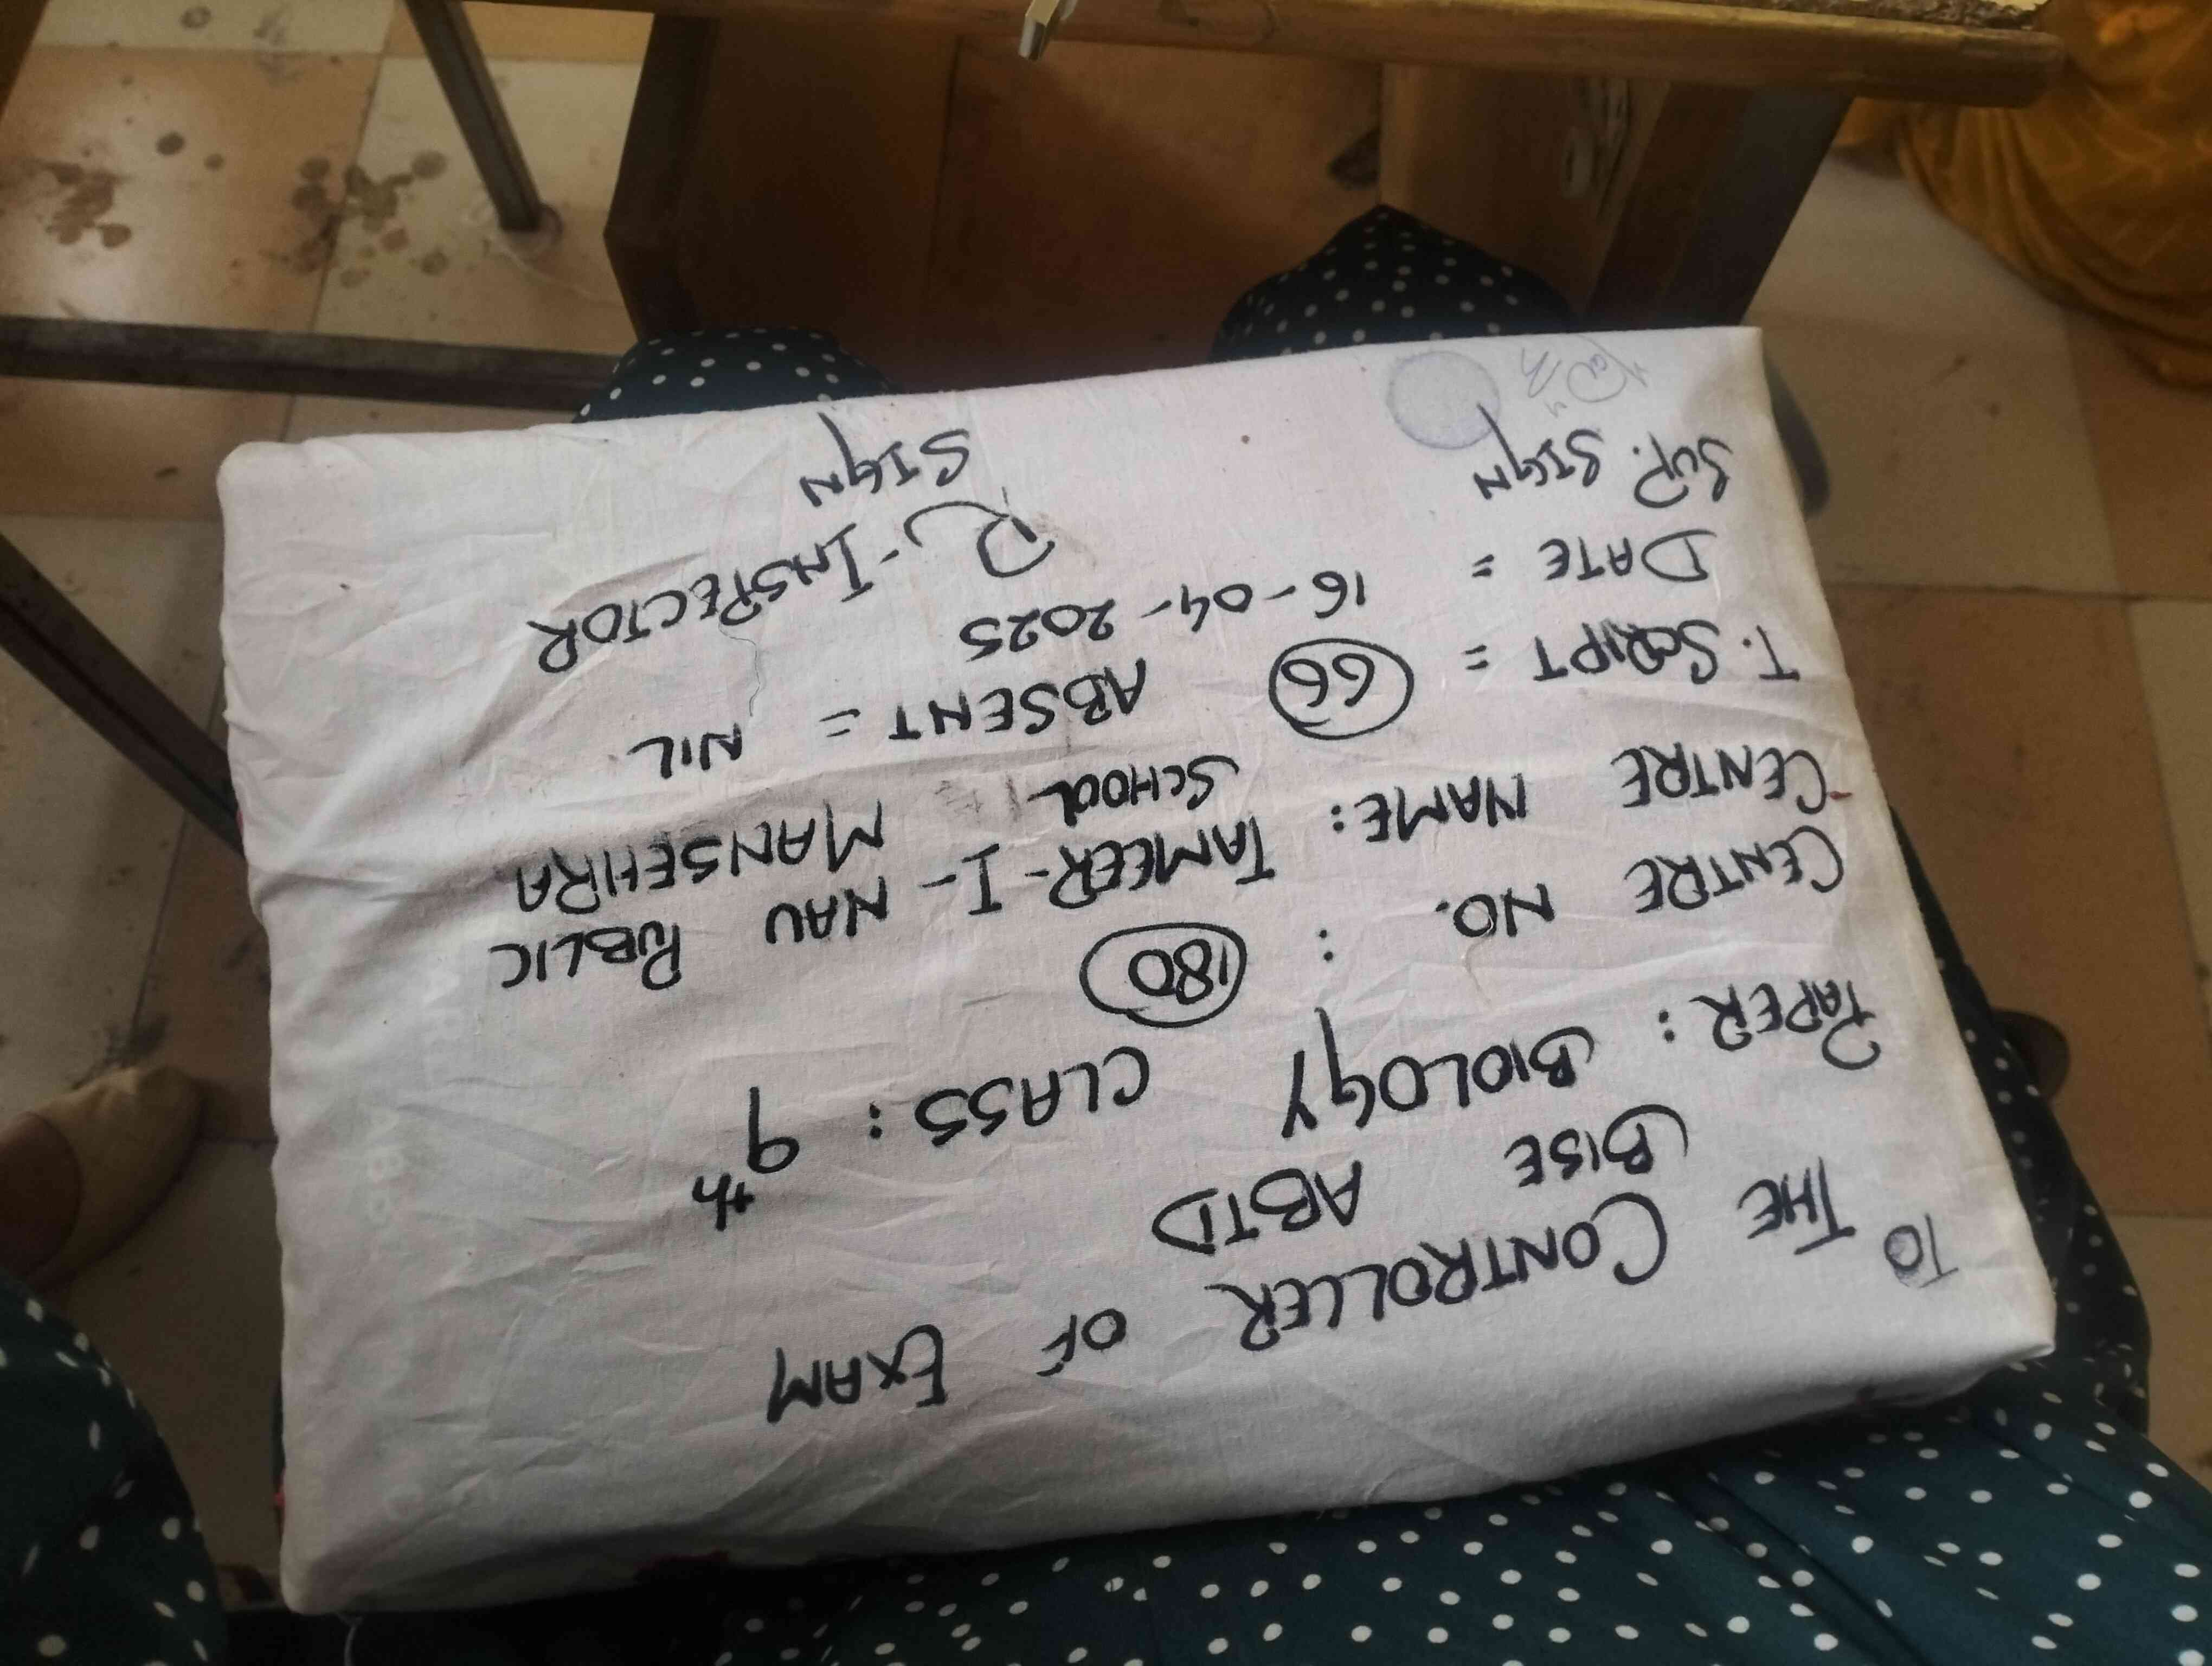 TO
THE CONTROLLER OF EXAM
BISE ABTD
PAPER: BIOLOGY CLASS: 9th
CENTRE NO. : 180
CENTRE NAME: TAMEER-I-NAU PUBLIC
SCHOOL MANSEHRA
T. SCRIPT = 66 ABSENT = NIL
DATE = 16-04-2025
SUP. SIGN R-INSPECTOR
SIGN